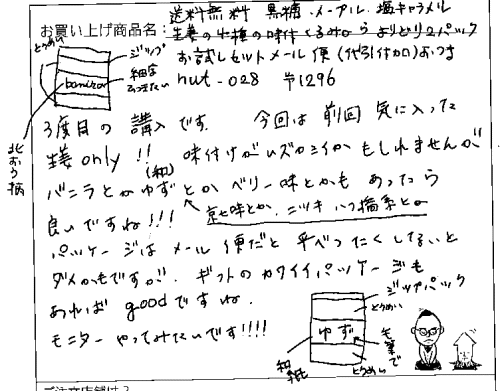 お買い上げ商品名: 送料無料 黒糖、メープル、塩キャラメル
生姜の4種の味付くるみから よりどり2パック
お試しセットメール便(代引付加)おつき
nut-028 〒1296
とうめい
ジップ
細字
banira
3度目の 購入です. 今回は 前回 気に入った
生姜only!! 味付けがムズカシイかもしれませんが
バニラとか ゆず(和)とか ベリー味とかも あったら
良いですね!!! 京七味とか、ニッキ 八つ橋系とか
パッケージは メール便だと 平べったくしてないと
ダメかもですが. ギフトの カワイイ パッケージも
あれば goodですね.
モニター やってみたいです!!!!
ジップパック
とうめい
ゆず
毛筆で
和紙
とうめい